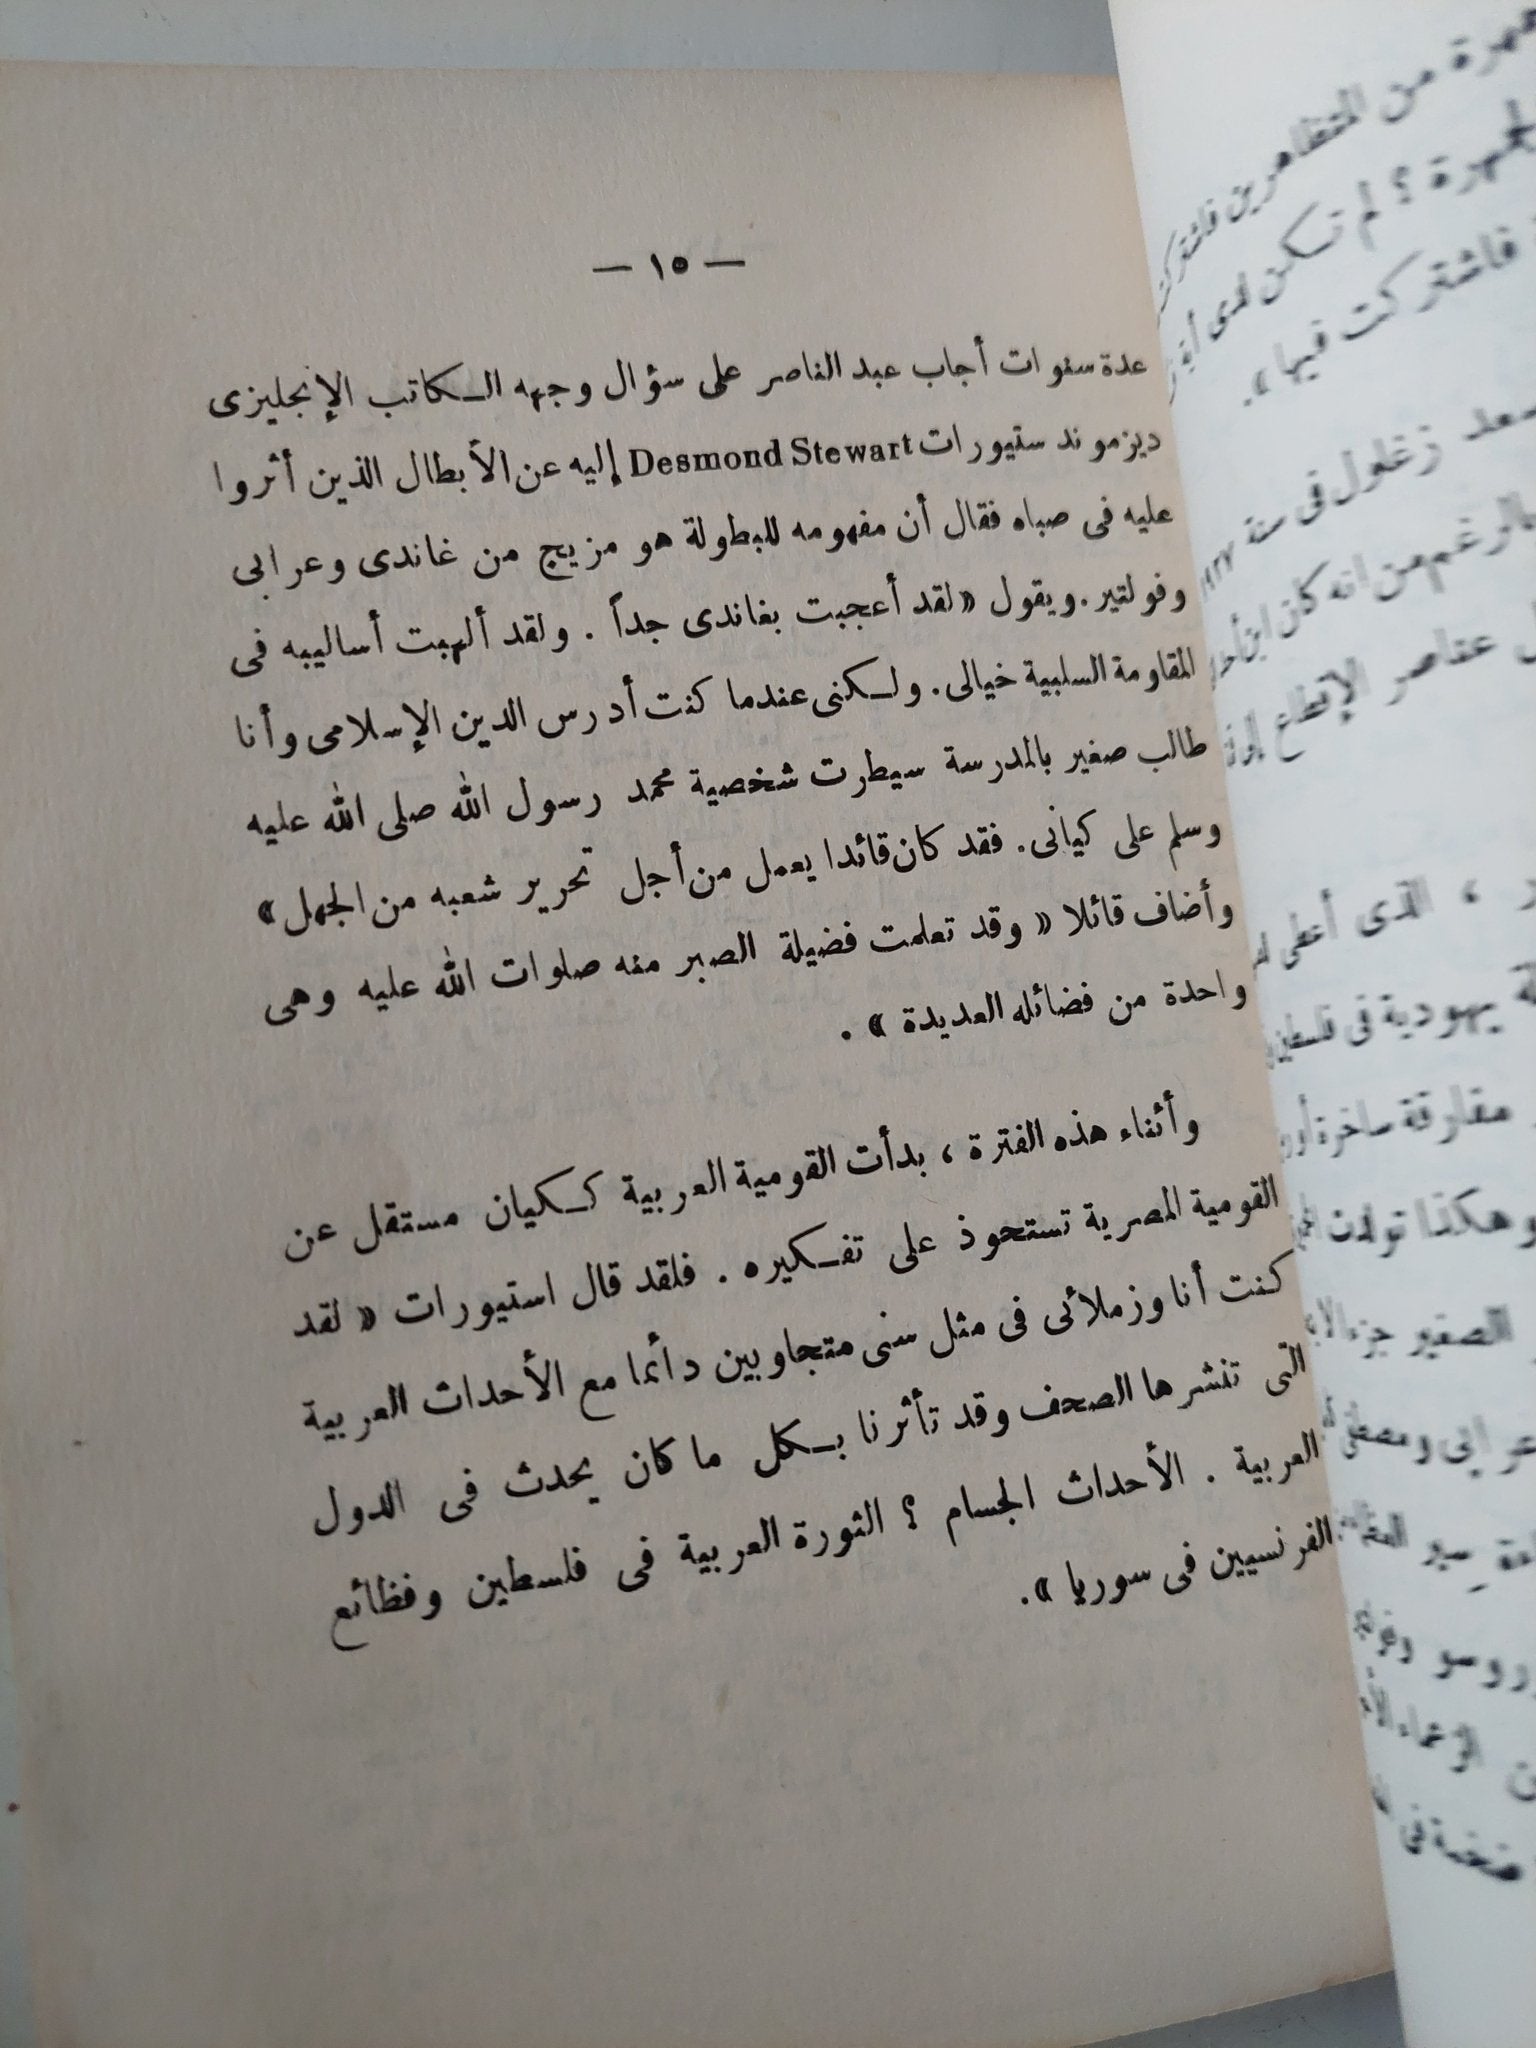 — ١٥ —
عدة سنوات أجاب عبد الناصر على سؤال وجهه الكاتب الإنجليزى
ديزموند ستيورات Desmond Stewart إليه عن الأبطال الذين أثروا
عليه فى صباه فقال أن مفهومه للبطولة هو مزيج من غاندى وعرابى
وفولتير. ويقول « لقد أعجبت بغاندى جداً . ولقد ألهبت أساليبه فى
المقاومة السلبية خيالى. ولكنى عندما كنت أدرس الدين الإسلامى وأنا
طالب صغير بالمدرسة سيطرت شخصية محمد رسول الله صلى الله عليه
وسلم على كيانى. فقد كان قائدا يعمل من أجل تحرير شعبه من الجهل »
وأضاف قائلا « وقد تعلمت فضيلة الصبر منه صلوات الله عليه وهى
واحدة من فضائله العديدة » .
وأثناء هذه الفترة ، بدأت القومية العربية ككيان مستقل عن
القومية المصرية تستحوذ على تفكيره . فلقد قال استيورات « لقد
كنت أنا وزملائى فى مثل سنى متجاوبين دائما مع الأحداث العربية
التى تنشرها الصحف وقد تأثرنا بكل ما كان يحدث فى الدول
العربية . الأحداث الجسام ؟ الثورة العربية فى فلسطين وفظائع
الفرنسيين فى سوريا ».
من المتظاهرين فاشتركت
؟ لم تكن لدى أية
فاشتركت فيها ».
زغلول فى سنة ١٩٢٧
من انه كان ابن
عناصر الإقطاع
، الذى أعطى
يهودية فى فلسطين
مقارقة ساخرة
وهكذا تولدت
الصغير جزء
ومصطفى
سير
روسو